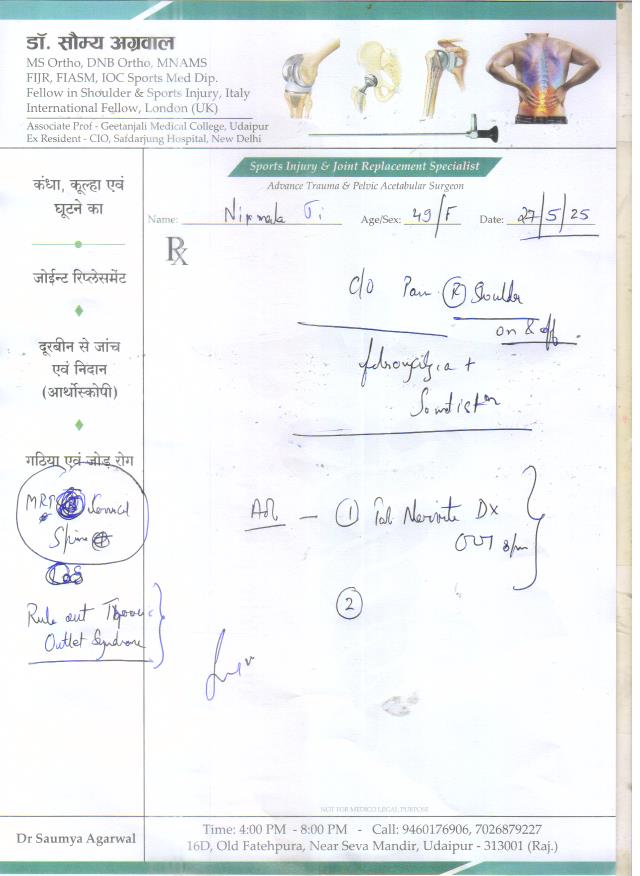 डॉ. सौम्य अग्रवाल
MS Ortho, DNB Ortho, MNAMS
FIJR, FIASM, IOC Sports Med Dip.
Fellow in Shoulder & Sports Injury, Italy
International Fellow, London (UK)
Associate Prof - Geetanjali Medical College, Udaipur
Ex Resident - CIO, Safdarjung Hospital, New Delhi
Sports Injury & Joint Replacement Specialist
Advance Trauma & Pelvic Acetabular Surgeon
Name: Nirmala Ji Age/Sex: 49/F Date: 27/5/25
Rx
कंधा, कूल्हा एवं
घूटने का
जोईन्ट रिप्लेसमेंट
दूरबीन से जांच
एवं निदान
(आर्थोस्कोपी)
गठिया एवं जोड़ रोग
MRI
Spine
Rule out
Outlet Syndrome
C/O Pain (R) Shoulder
on & off
+
Adv - 1 Tab Nervite DX
2
NOT FOR MEDICO LEGAL PURPOSE
Dr Saumya Agarwal
Time: 4:00 PM - 8:00 PM - Call: 9460176906, 7026879227
16D, Old Fatehpura, Near Seva Mandir, Udaipur - 313001 (Raj.)